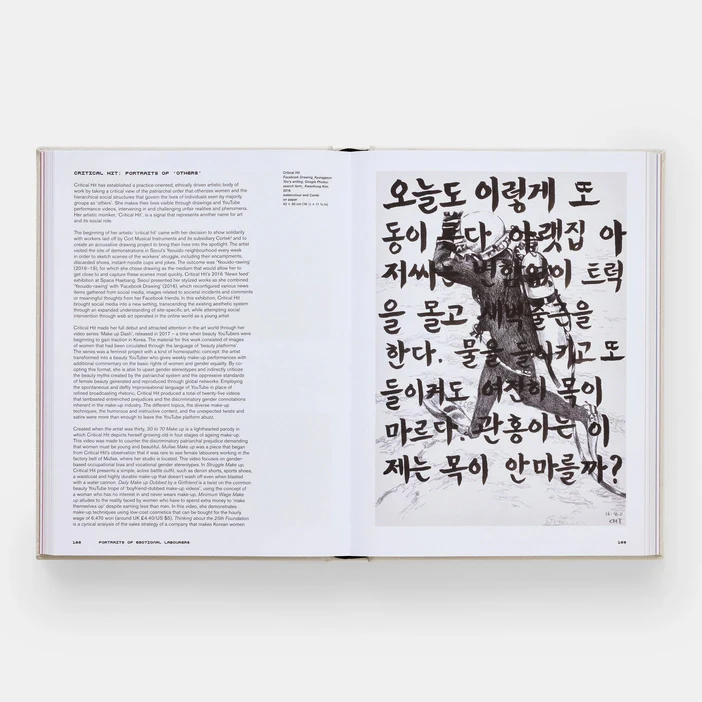 CRITICAL HIT: PORTRAITS OF 'OTHERS'
Critical Hit has established a practice-oriented, ethically driven artistic body of
work by taking a critical view of the patriarchal order that otherizes women and the
hierarchical social structures that govern the lives of individuals seen by majority
groups as 'others'. She makes their lives visible through drawings and YouTube
performance videos, intervening in and challenging unfair realities and phenomena.
Her artistic moniker, 'Critical Hit', is a signal that represents another name for art
and its social role.
The beginning of her artistic 'critical hit' came with her decision to show solidarity
with workers laid off by Cort Musical Instruments and its subsidiary Cortek² and to
create an accusative drawing project to bring their lives into the spotlight. The artist
visited the site of demonstrations in Seoul's Yeouido neighbourhood every week
in order to sketch scenes of the workers' struggle, including their encampments,
discarded shoes, instant-noodle cups and jokes. The outcome was 'Yeouido-rawing'
(2016–18), for which she chose drawing as the medium that would allow her to
get close to and capture these scenes most quickly. Critical Hit's 2016 'News feed'
exhibition at Space Haebang, Seoul presented her stylized works as she combined
'Yeouido-rawing' with 'Facebook Drawing' (2016), which reconfigured various news
items gathered from social media, images related to societal incidents and comments
or meaningful thoughts from her Facebook friends. In this exhibition, Critical Hit
brought social media into a new setting, transcending the existing aesthetic system
through an expanded understanding of site-specific art, while attempting social
intervention through web art operated in the online world as a young artist
Critical Hit made her full debut and attracted attention in the art world through her
video series 'Make up Dash', released in 2017 – a time when beauty YouTubers were
beginning to gain traction in Korea. The material for this work consisted of images
of women that had been circulated through the language of 'beauty platforms'.
The series was a feminist project with a kind of homeopathic concept: the artist
transformed into a beauty YouTuber who gives weekly make-up performances with
additional commentary on the basic rights of women and gender equality. By co-
opting this format, she is able to upset gender stereotypes and indirectly criticize
the beauty myths created by the patriarchal system and the oppressive standards
of female beauty generated and reproduced through global networks. Employing
the spontaneous and deftly improvisational language of YouTube in place of
refined broadcasting rhetoric, Critical Hit produced a total of twenty-five videos
that lambasted entrenched prejudices and the discriminatory gender connotations
inherent in the make-up industry. The different topics, the diverse make-up
techniques, the humorous and instructive content, and the unexpected twists and
satire were more than enough to leave the YouTube platform abuzz.
Created when the artist was thirty, 30 to 70 Make up is a lighthearted parody in
which Critical Hit depicts herself growing old in four stages of ageing make-up.
This video was made to counter the discriminatory patriarchal prejudice demanding
that women must be youthful and beautiful. Mullae Make up was a piece that began
from Critical Hit's observation that it was rare to see female labourers working in the
factory belt of Mullae, where her studio is located. This video focuses on gender-
based occupational bias and vocational gender stereotypes. In Struggle Make up,
Critical Hit presents a simple, active battle outfit, such as denim shorts, sports shoes,
a waistcoat and highly durable make-up that doesn't wash off even when blasted
with a water cannon. Daily Make up Dubbed by a Girlfriend is a twist on the common
beauty YouTube trope of 'boyfriend-dubbed make-up videos', using the concept of
a woman who has no interest in and never wears make-up. Minimum Wage Make
up alludes to the reality faced by women who have to spend extra money to 'make
themselves up' despite earning less than men. In this video, she demonstrates
make-up techniques using low-cost cosmetics that can be bought for the hourly
wage of 6,470 won (around UK £4.40/US $5). Thinking about the 25th Foundation
is a cynical analysis of the sales strategy of a company that makes Korean women
108 PORTRAITS OF EMOTIONAL LABOURERS
Critical Hit
2016
on paper
오늘도 이렇게 또
동이 다 아랫집 아
저씨는 이 트럭
을 몰고
한다. 물을 들이키고 또
들이켜도 여전히 목이
마르다. 관홍아 는 이
제는 목이 안마를까?
109